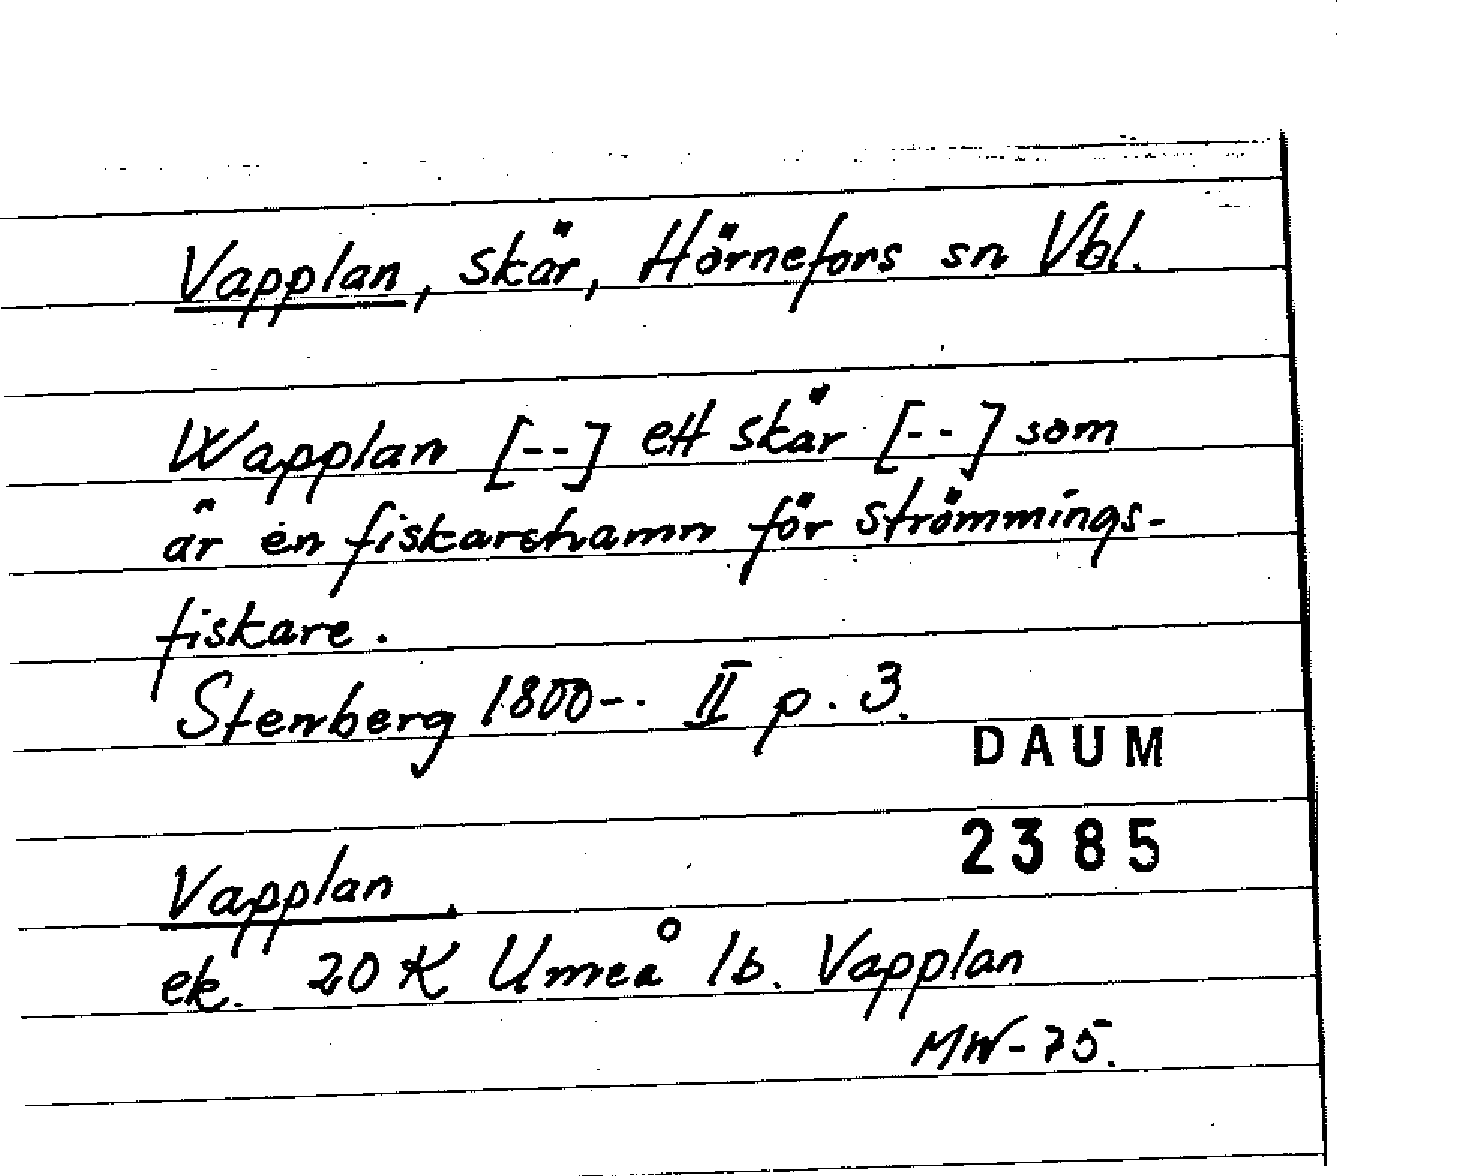 Vapplan, skär, Hörnefors sn Vbl.
Wapplan [--] ett skär [--] som
är en fiskarehamn för strömmings-
fiskare.
Stenberg 1800-. II p. 3.
DAUM
2385
Vapplan.
ek. 20 K Umeå 1b. Vapplan
MW-75.